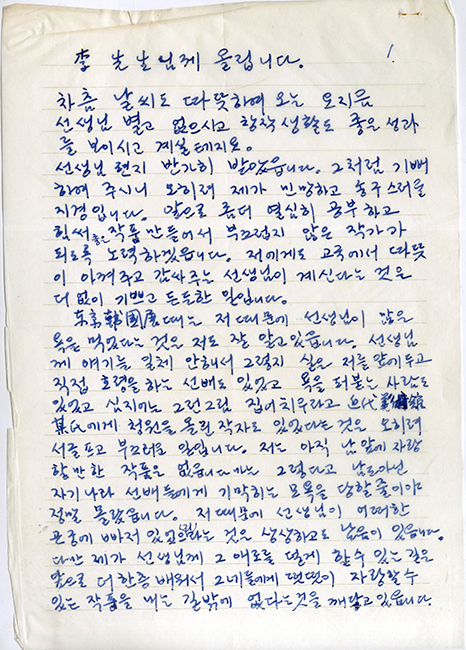 李 先生님께 올립니다.
1.
차츰 날씨도 따뜻하여 오는 요지음
선생님 별고 없으시고 창작생활도 좋은 성과
를 보이시고 계실테지요.
선생님 편지 반가히 받았읍니다. 그처럼 기뻐
하여 주시니 오히려 제가 민망하고 송구스러울
지경입니다. 앞으로 좀더 열심히 공부하고
힘써 좋은 작품 만들어서 부끄럽지 않은 작가가
되도록 노력하겠읍니다. 저에게도 고국에서 따뜻
이 아껴주고 감싸주는 선생님이 계신다는 것은
더 없이 기쁘고 든든한 일입니다.
东京韓国展 때는 저 때문에 선생님이 많은
욕을 먹었다는 것은 저도 잘 알고 있읍니다. 선생님
께 얘기는 일체 안해서 그렇지 실은 저를 앞에두고
직접 호령을 하는 선배도 있었고 욕을 퍼붙는 사람도
있었고 심지어는 그런그림 집어치우라고 近代
某氏에게 청원을 올린 작자도 있었다는 것은 오히려
서글프고 부끄러운 일입니다. 저는 아직 남앞에 자랑
할만한 작품은 없읍니다마는 그렇다고 남도아닌
자기나라 선배들에게 기막히는 모욕을 당할줄이야
정말 몰랐읍니다. 저 때문에 선생님이 어떠한
곤로에 빠져 있었다는 것은 상상하고도 남음이 있읍니다.
다만 제가 선생님께 그 애로를 덜게 할수 있는 길은
앞으로 더 한층 배워서 그네들에게 떳떳이 자랑할수
있는 작품을 내는 길밖에 없다는것을 깨닫고 있읍니다.